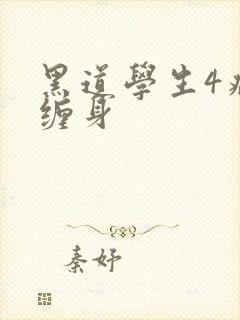 黑道學生4
缠身
秦妤